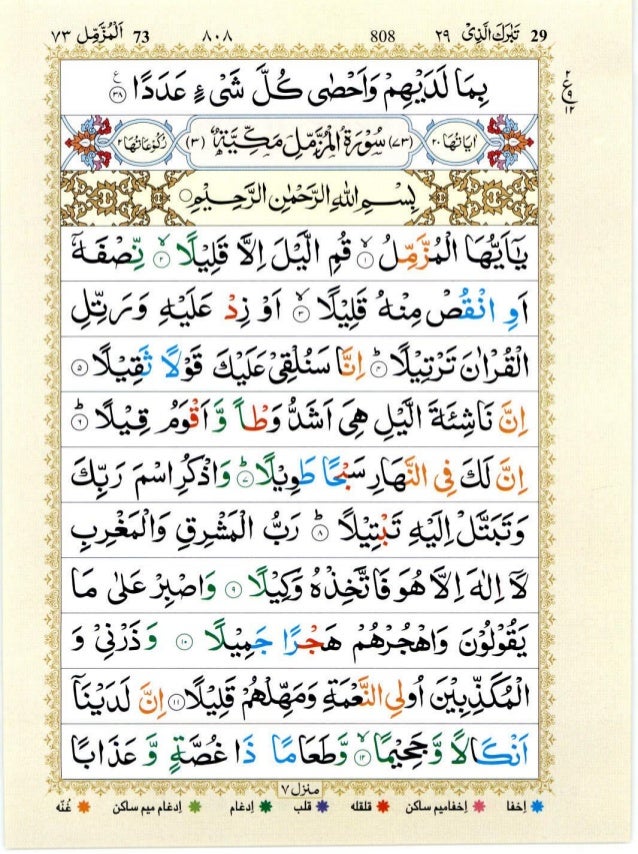 29 تَبٰرَكَ الَّذِیْ ٢٩ 808 ٨٠٨ 73 اَلْمُزَّمِّل ٧٣
بِمَا لَدَیْهِمْ وَاَحْصٰى كُلَّ شَیْءٍ عَدَدًا ۟۠ ع ٢٨
٢ ع ٩ ١٢
اٰیَاتُهَا ٢٠ (٧٣) سُوْرَةُ الْمُزَّمِّلِ مَكِّیَّةٌ (٣) رُكُوْعَاتُهَا ٢
بِسْمِ اللهِ الرَّحْمٰنِ الرَّحِیْمِ
یٰۤاَیُّهَا الْمُزَّمِّلُ ۙ ١ قُمِ الَّیْلَ اِلَّا قَلِیْلًا ۙ ٢ نِّصْفَهٗۤ
اَوِ انْقُصْ مِنْهُ قَلِیْلًا ۙ ٣ اَوْ زِدْ عَلَیْهِ وَرَتِّلِ
الْقُرْاٰنَ تَرْتِیْلًا ؕ ٤ اِنَّا سَنُلْقِیْ عَلَیْكَ قَوْلًا ثَقِیْلًا ٥
اِنَّ نَاشِئَةَ الَّیْلِ هِیَ اَشَدُّ وَطْاً وَّ اَقْوَمُ قِیْلًا ؕ ٦
اِنَّ لَكَ فِی النَّهَارِ سَبْحًا طَوِیْلًا ؕ ٧ وَاذْكُرِ اسْمَ رَبِّكَ
وَتَبَتَّلْ اِلَیْهِ تَبْتِیْلًا ؕ ٨ رَبُّ الْمَشْرِقِ وَالْمَغْرِبِ
لَاۤ اِلٰهَ اِلَّا هُوَ فَاتَّخِذْهُ وَكِیْلًا ٩ وَاصْبِرْ عَلٰى مَا
یَقُوْلُوْنَ وَاهْجُرْهُمْ هَجْرًا جَمِیْلًا ١٠ وَذَرْنِیْ وَ
الْمُكَذِّبِیْنَ اُولِی النَّعْمَةِ وَمَهِّلْهُمْ قَلِیْلًا ١١ اِنَّ لَدَیْنَاۤ
اَنْكَالًا وَّجَحِیْمًا ۙ ١٢ وَّطَعَامًا ذَا غُصَّةٍ وَّ عَذَابًا
منزل ٧
اِخفا اِخفامیم ساکن قلقله قلب اِدغام اِدغام میم ساکن غُنّه